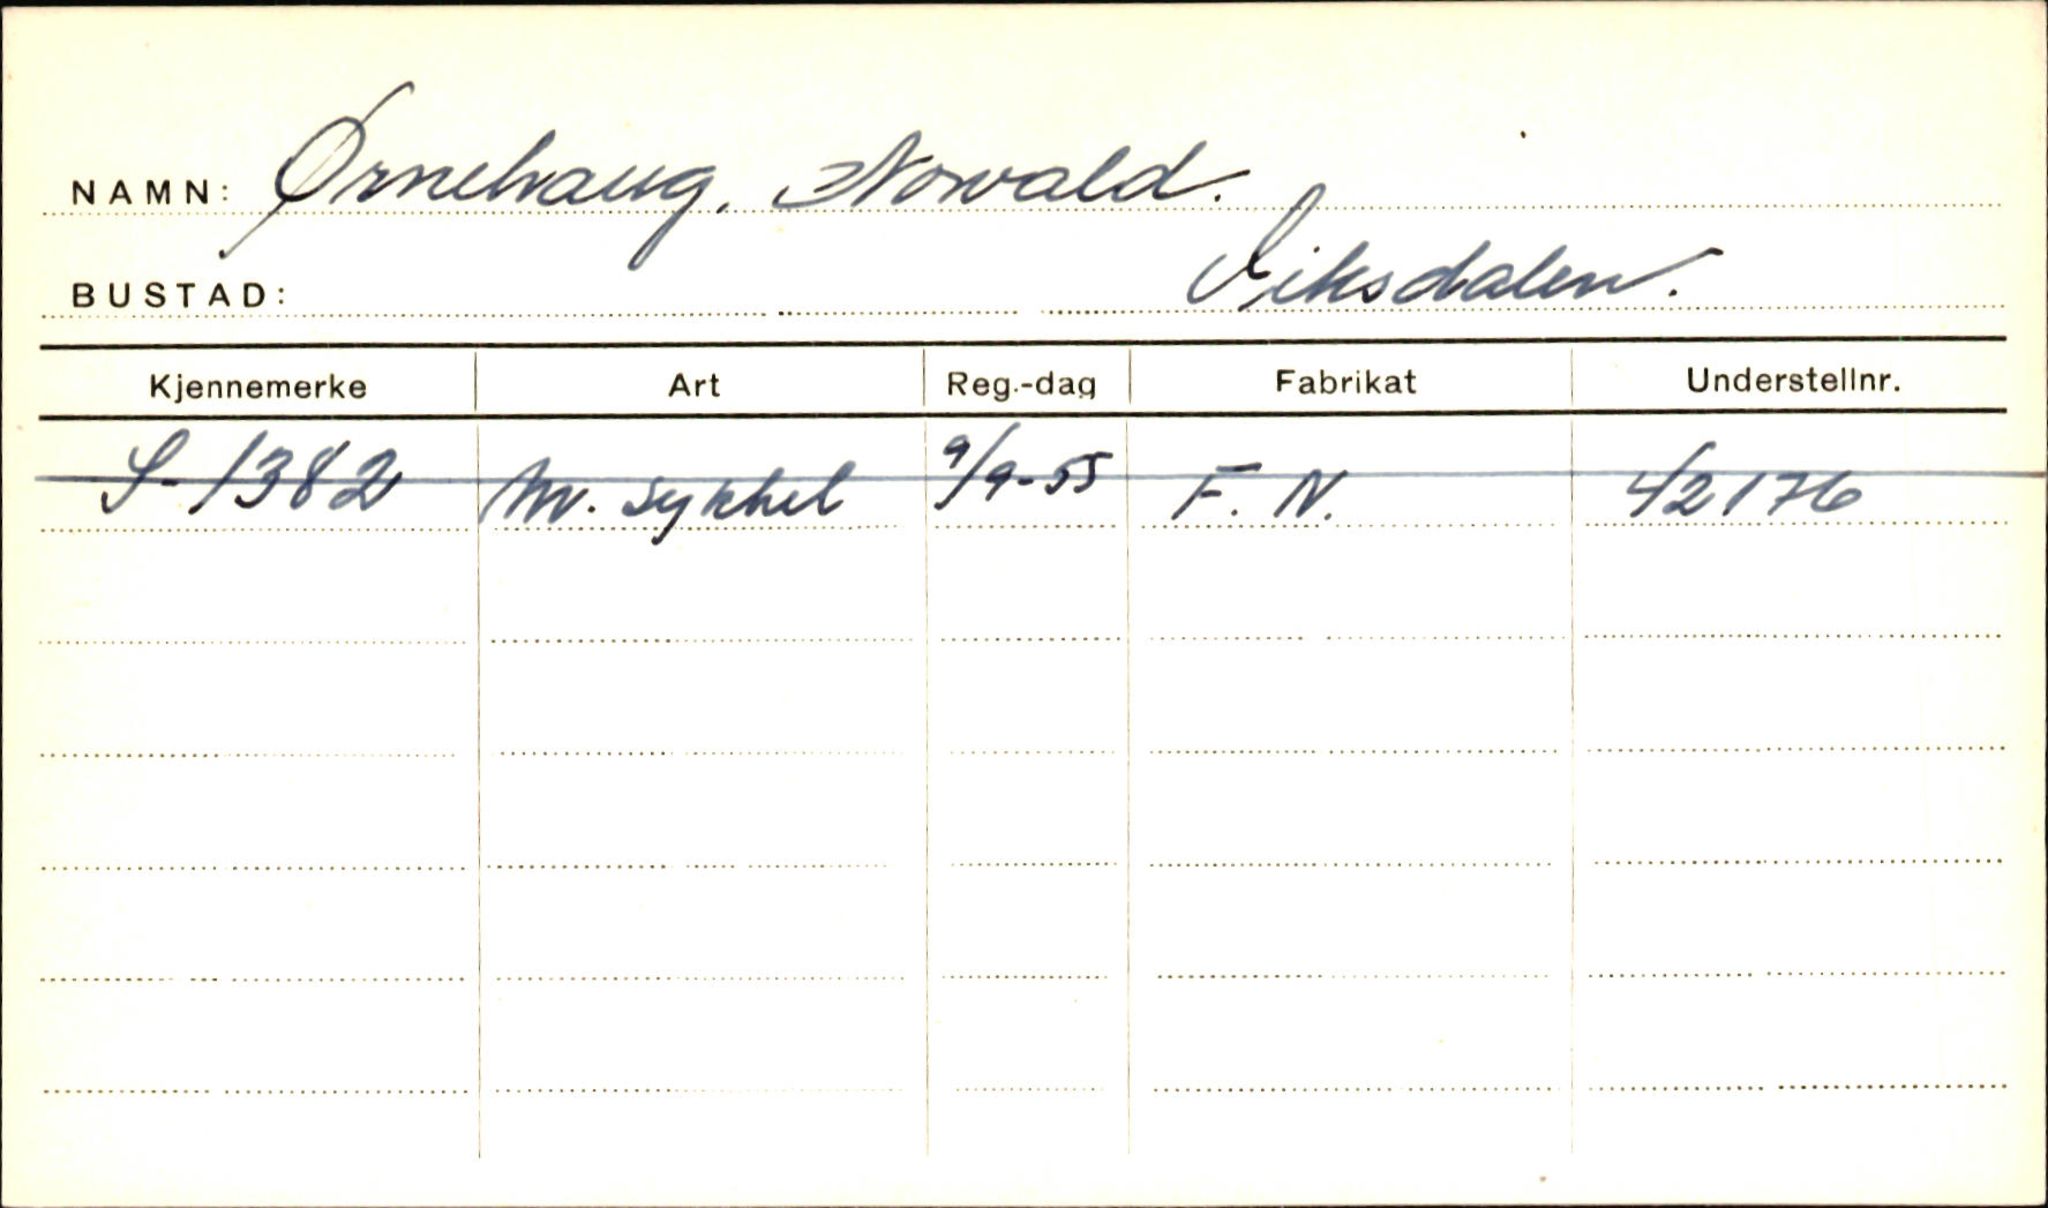 NAMN: Ørnehaug, Norvald.
BUSTAD: Eiksdalen.
Kjennemerke Art Reg.-dag Fabrikat Understellnr.
S-1382 M. sykkel 9/9-55 F. N. 42176